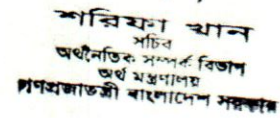 শরিফা খান
সচিব
অর্থনৈতিক সম্পর্ক বিভাগ
অর্থ মন্ত্রণালয়
গণপ্রজাতন্ত্রী বাংলাদেশ সরকার